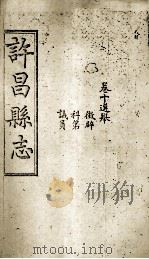 許昌縣志
卷十選舉
徵辟
科第
議員